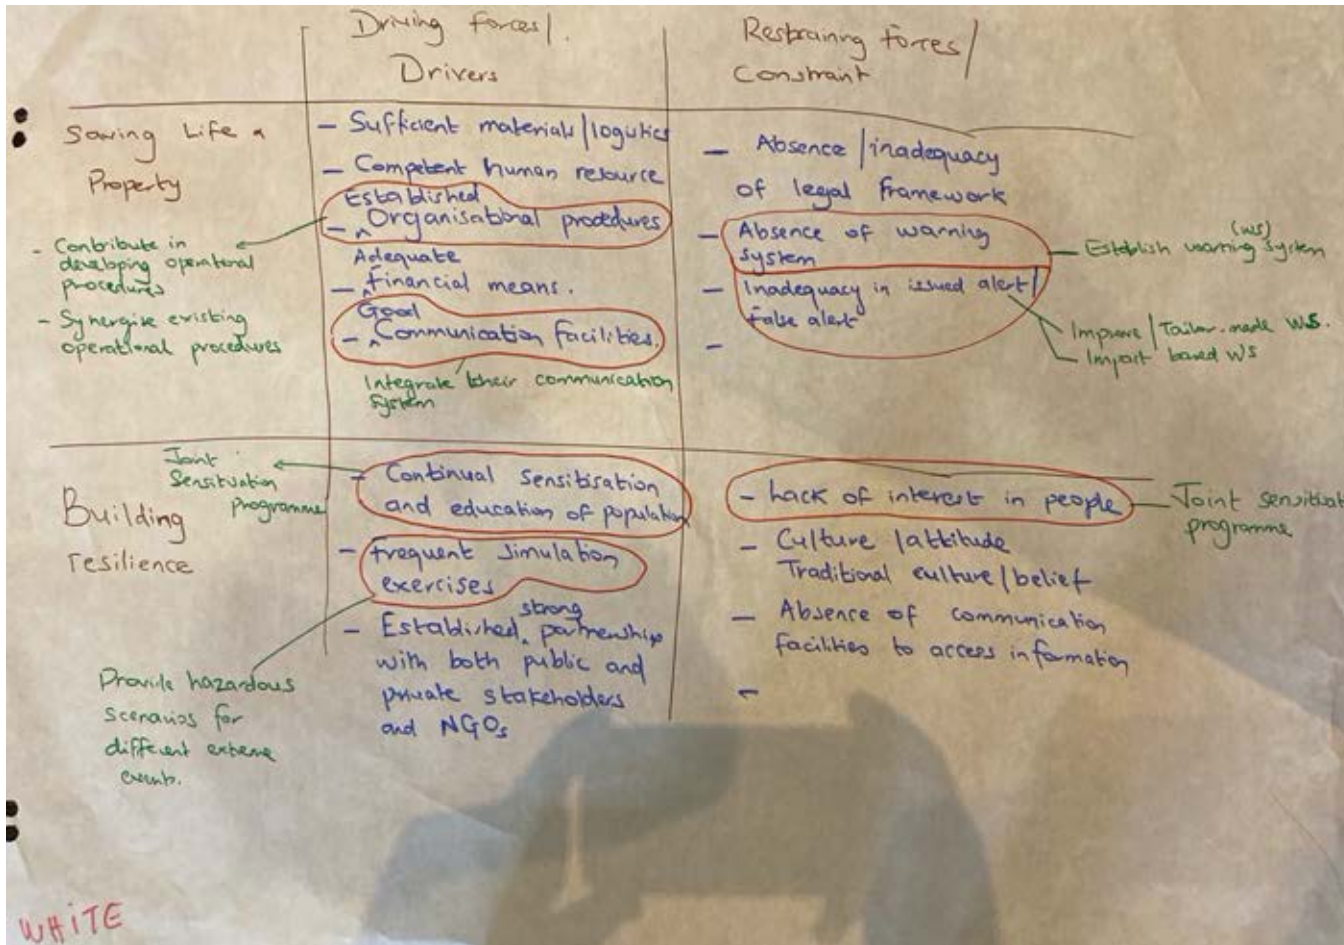 Driving forces/.
Drivers
Restraining forces/
Constraint
Saving Life &
Property
- Contribute in
developing operational
procedures
- Synergise existing
operational procedures
- Sufficient materials/logistics
- Competent human resource
Established
- ^ Organisational procedures
Adequate
- ^ Financial means.
Good
- ^ Communication facilities.
Integrate their communication
system
- Absence/inadequacy
of legal framework
- Absence of warning
system
- Inadequacy in issued alert/
false alert
-
(WS)
Establish warning system
Improve/Tailor-made WS.
Impact based WS
Building
resilience
Joint
Sensitisation
programme
- Continual sensitisation
and education of population
- Frequent simulation
exercises
strong
- Established ^ partnership
with both public and
private stakeholders
and NGOs
Provide hazardous
scenarios for
different extreme
events.
- Lack of interest in people
- Culture/attitude
Traditional culture/belief
- Absence of communication
facilities to access information
-
Joint sensitisat
programme
WHiTE